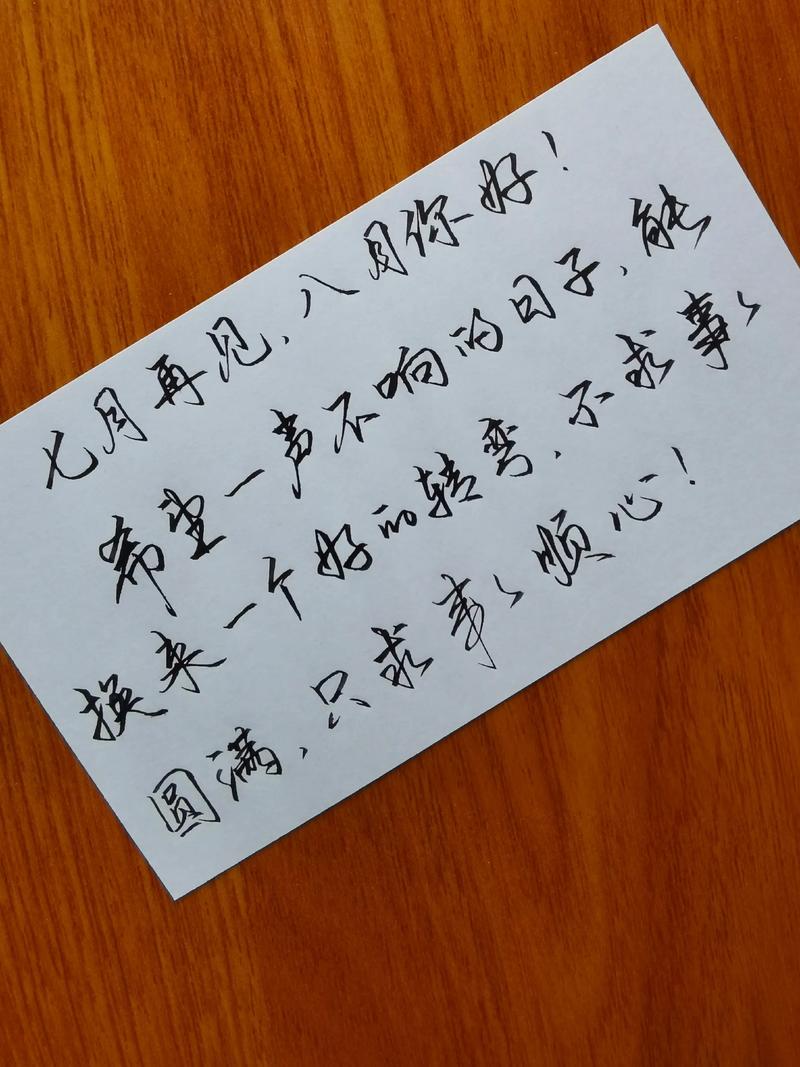 七月再见，八月你好！
希望一声不响的日子，能
换来一个好的转弯，不求事々
圆满，只求事々顺心！